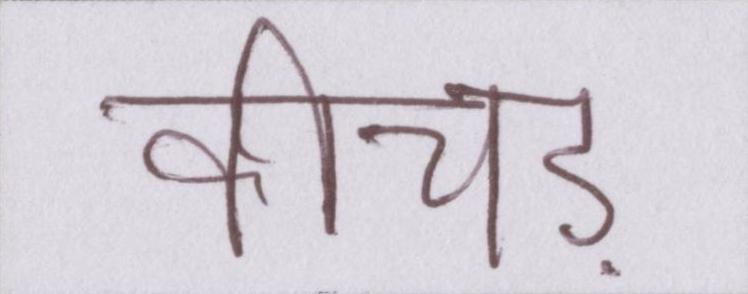 कीचड़